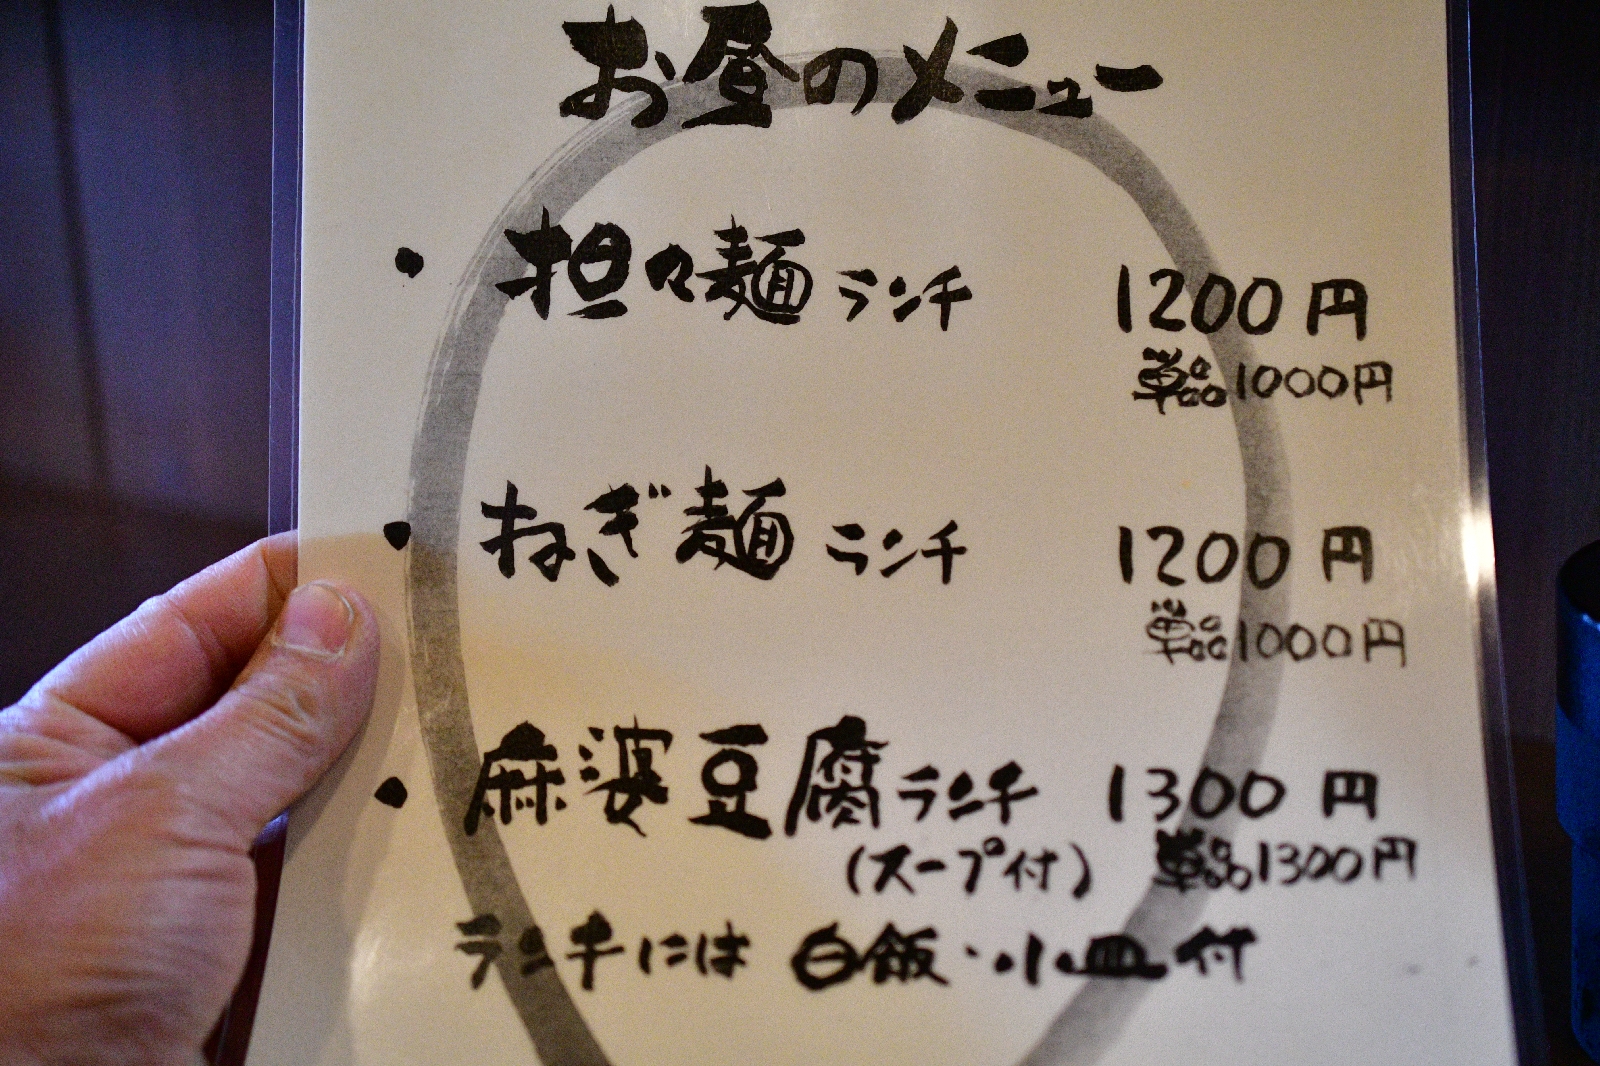 お昼のメニュー
・担々麺ランチ 1200円
単品1000円
・ねぎ麺ランチ 1200円
単品1000円
・麻婆豆腐ランチ 1300円
(スープ付) 単品1300円
ランチには 白飯・小皿付